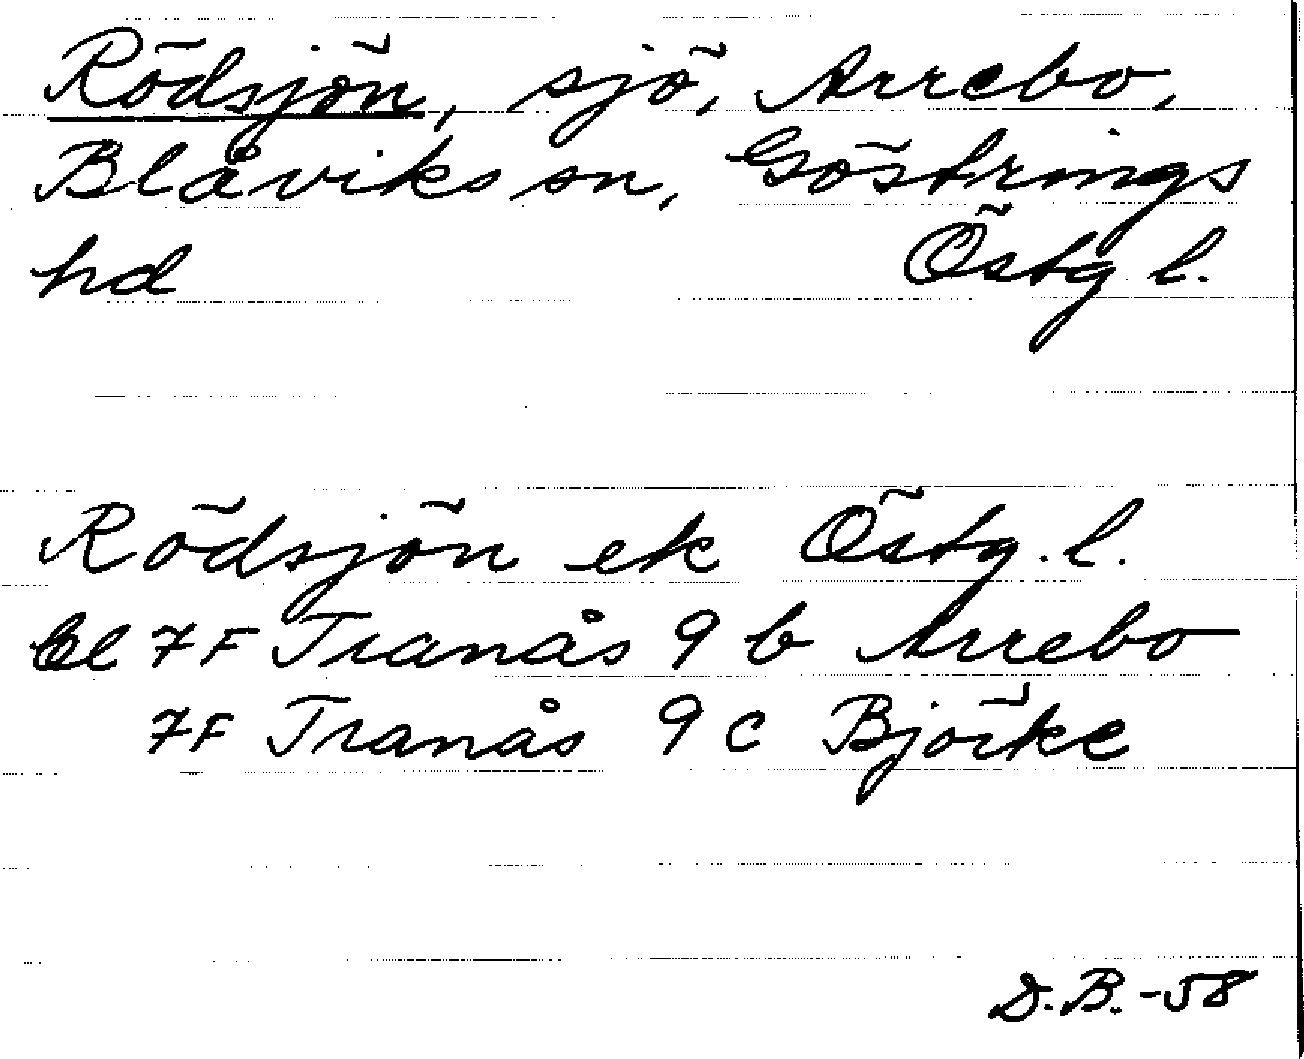 Rödsjön, sjö, Arrebo,
Blåviks sn, Göstrings
hd Östg l.
Rödsjön ek Östg. l.
bl 7F Tranås 9 b Arrebo
7F Tranås 9 c Björke
D.B.-58